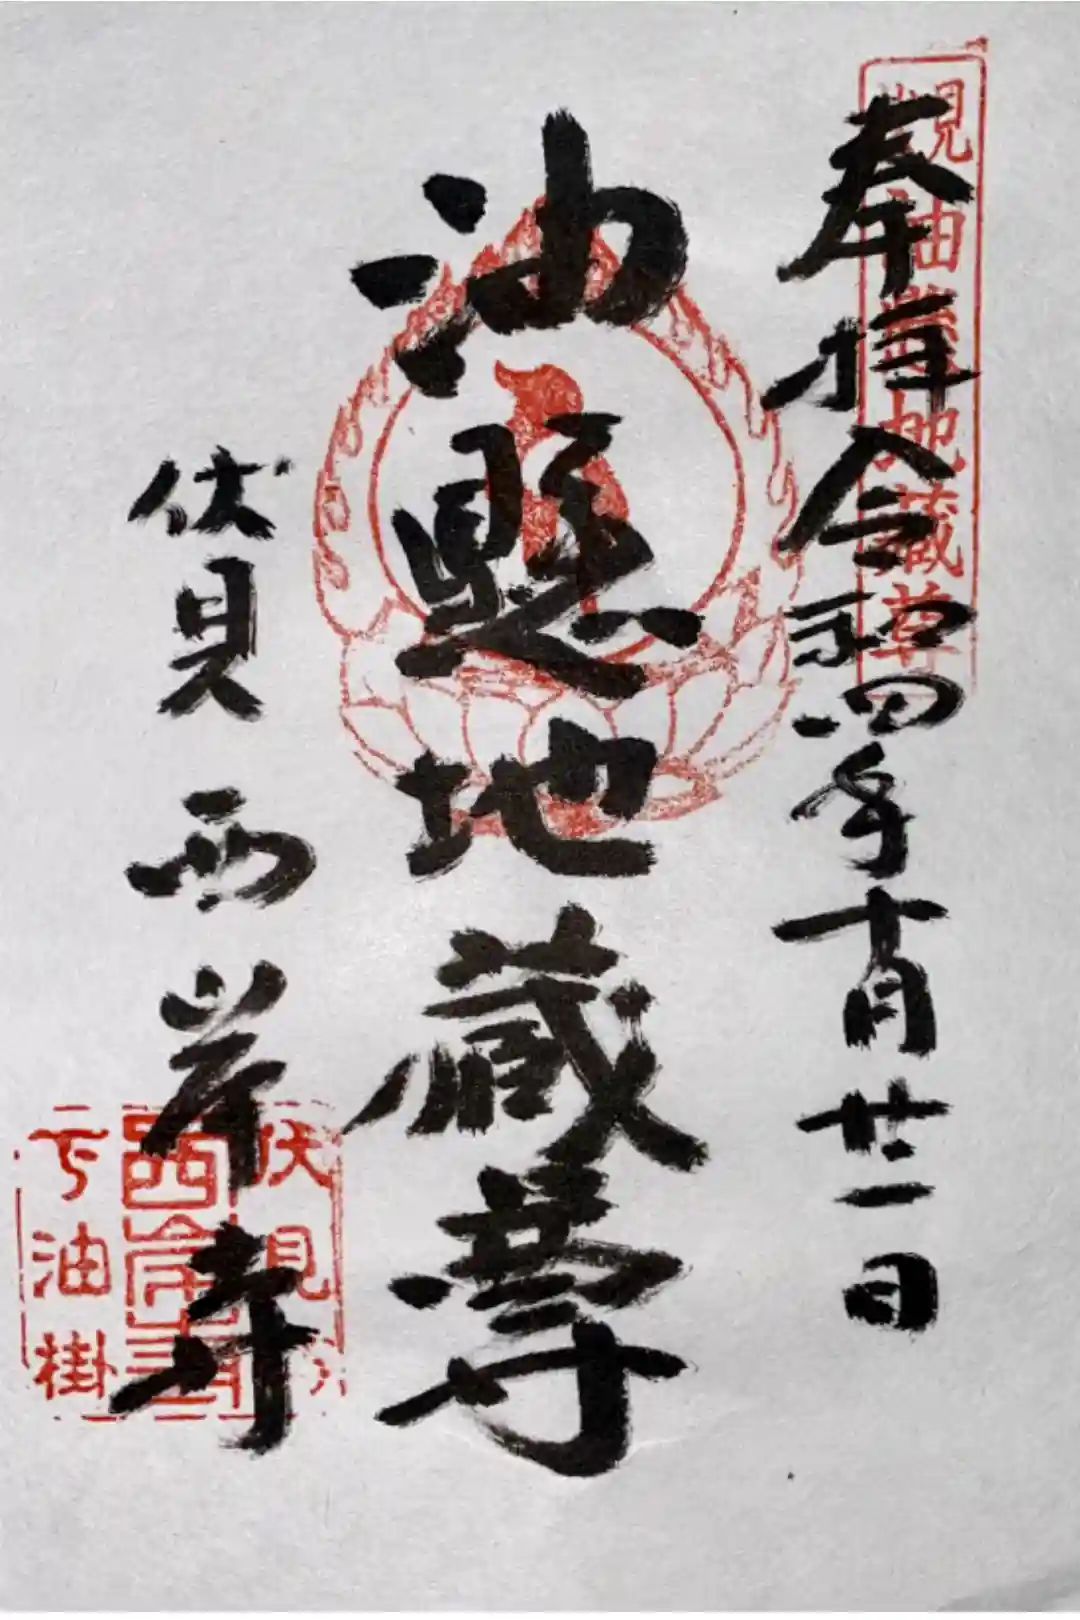 奉拝 令和四年十月廿二日
見油懸地蔵尊
油懸地蔵尊
伏見 西岸寺
伏見
西岸寺
下油掛